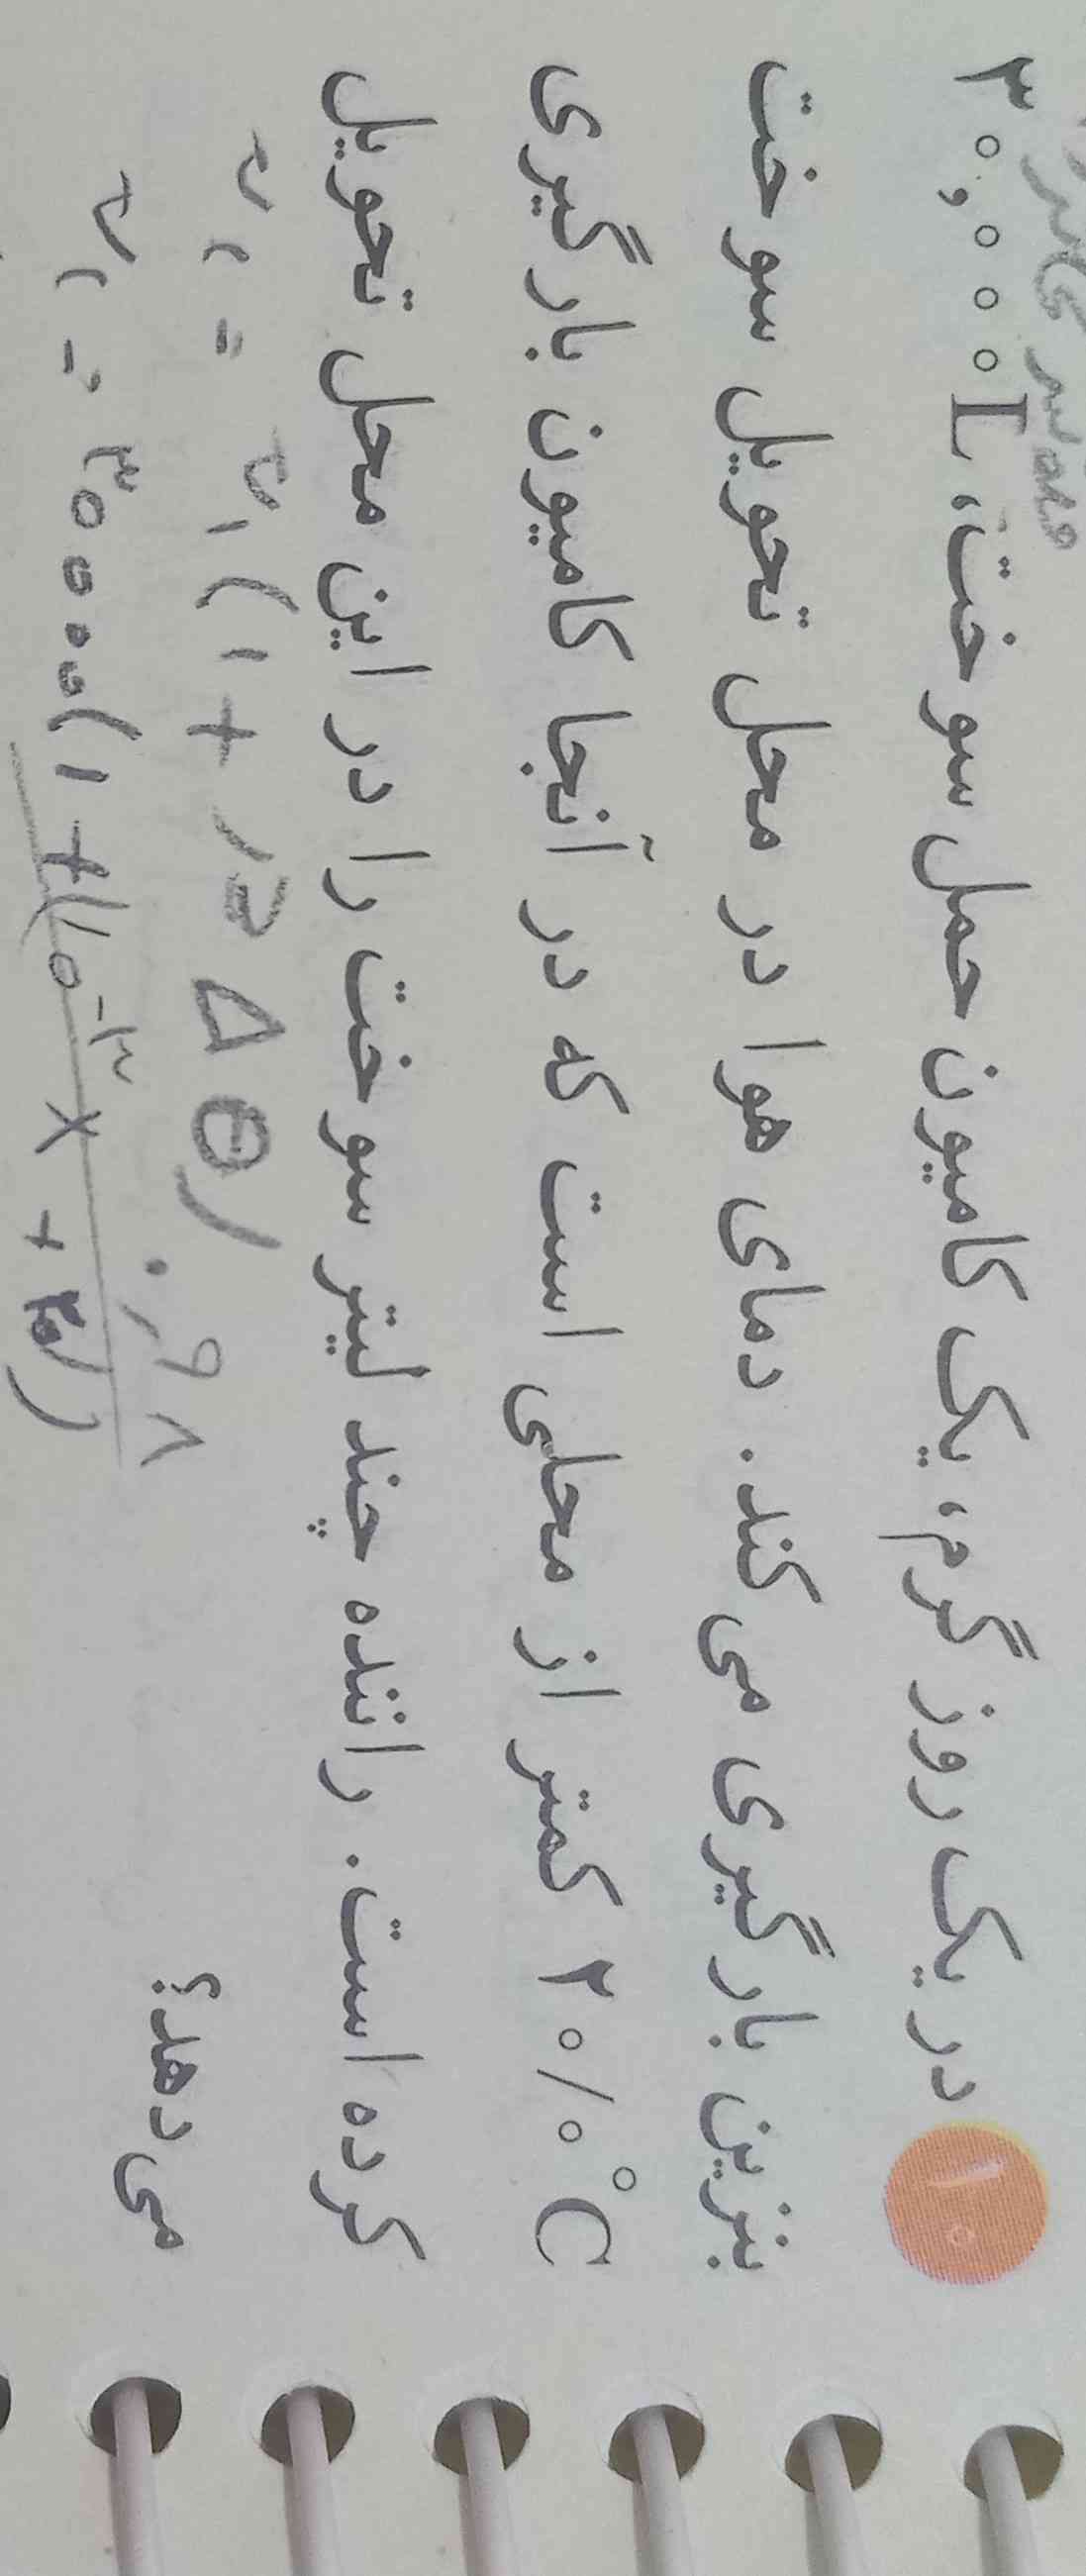 ۱۰ در یک روز گرم، یک کامیون حمل سوخت، ۳۰,۰۰۰L
بنزین بارگیری می‌کند. دمای هوا در محل تحویل سوخت
۲۰/۰°C کمتر از محلی است که در آنجا کامیون بارگیری
کرده است. راننده چند لیتر سوخت را در این محل تحویل
می‌دهد؟
V₂ = V₁(1 + β Δθ)
۰,۹۸